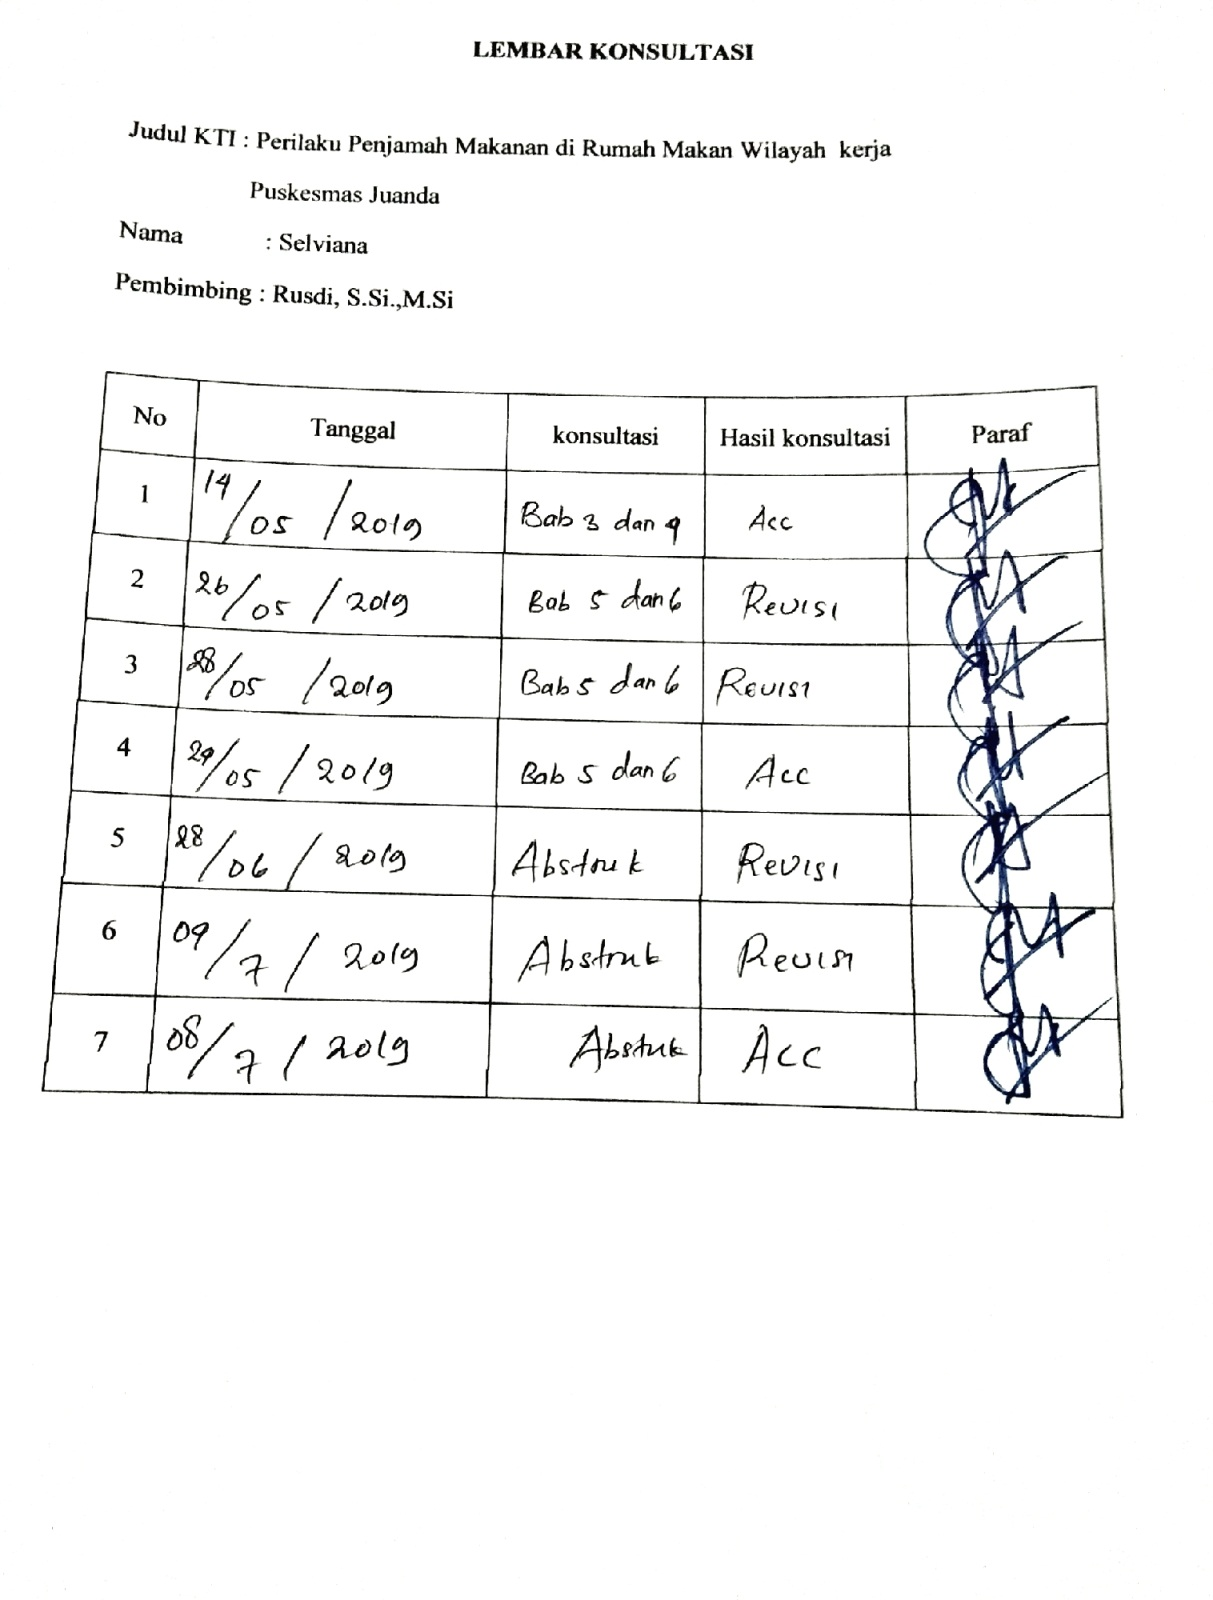 LEMBAR KONSULTASI
Judul KTI : Perilaku Penjamah Makanan di Rumah Makan Wilayah kerja
Puskesmas Juanda
Nama : Selviana
Pembimbing : Rusdi, S.Si.,M.Si
No Tanggal konsultasi Hasil konsultasi Paraf
1 14/05/2019 Bab 3 dan 4 Acc
2 26/05/2019 Bab 5 dan 6 Revisi
3 28/05/2019 Bab 5 dan 6 Revisi
4 29/05/2019 Bab 5 dan 6 Acc
5 28/06/2019 Abstrak Revisi
6 09/7/2019 Abstrak Revisi
7 08/7/2019 Abstrak Acc